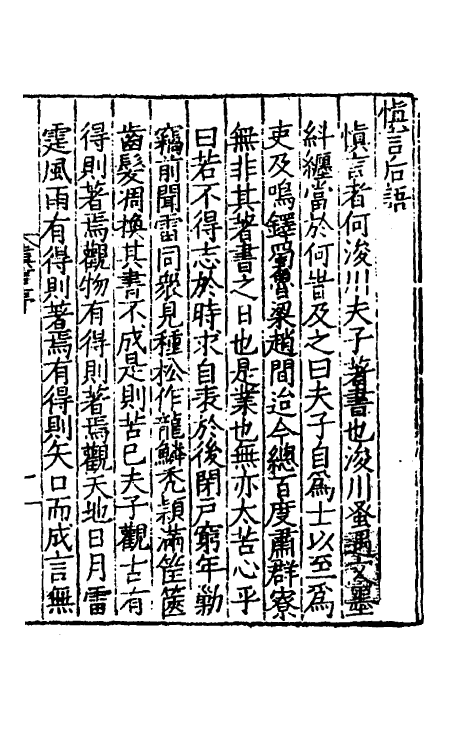 慎言后語
慎言者何浚川夫子著書也浚川蚤遇文墨
糾纏當於何時及之曰夫子自為士以至為
吏及嗚鐸蜀曹梁趙間迨今總百度肅群寮
無非其著書之日也是業也無亦太苦心乎
曰若不得志於時求自表於後閉戸窮年勦
竊前聞雷同衆見種松作龍鱗禿頴滿筐篋
齒髮凋換其書不成是則苦已夫子觀古有
得則著焉觀物有得則著焉觀天地日月雷
霆風雨有得則著焉有得則矢口而成言無